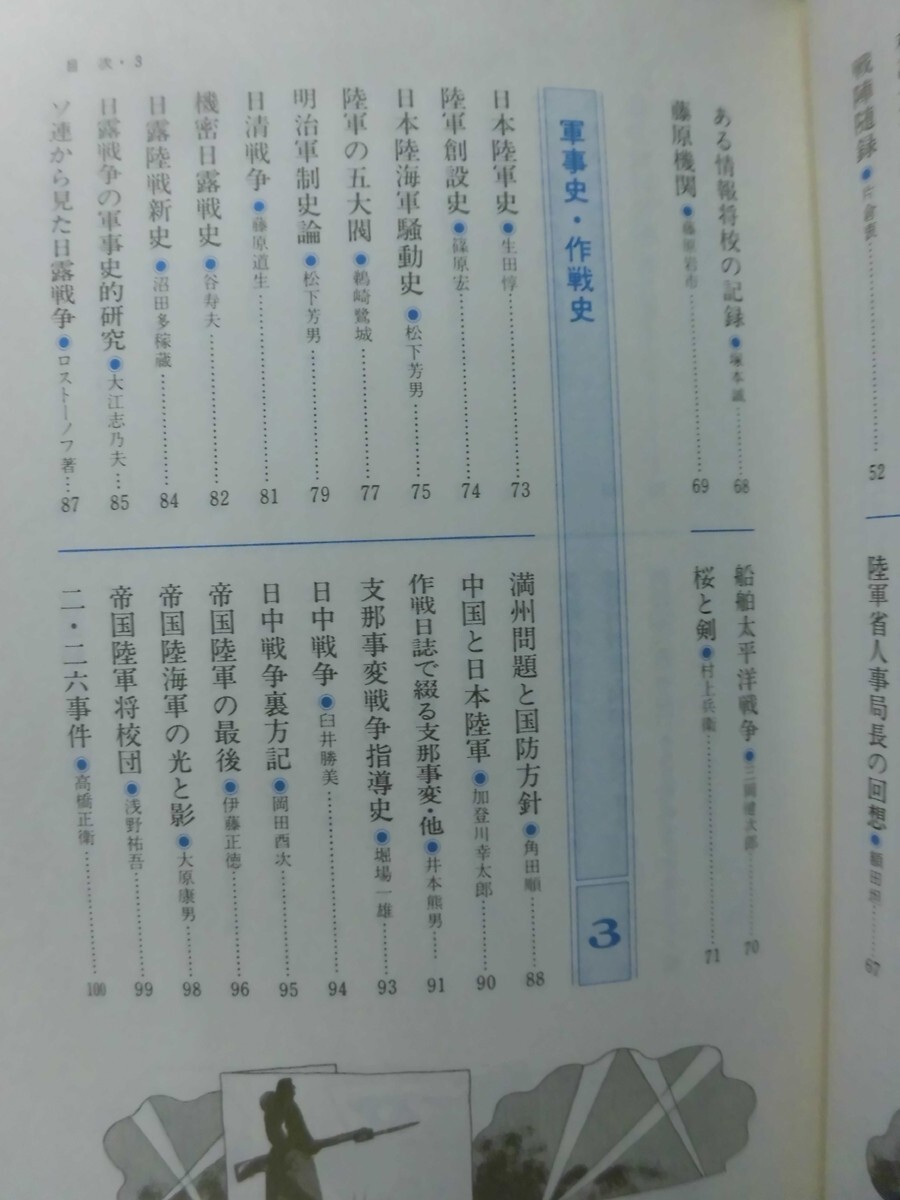 戦陣随録●片倉衷……52
陸軍省人事局長の回想●額田坦……67
目次・3
ある情報将校の記録●塚本誠……68
藤原機関●藤原岩市……69
船舶太平洋戦争●三岡健次郎……70
桜と剣●村上兵衛……71
軍事史・作戦史 3
日本陸軍史●生田惇……73
陸軍創設史●篠原宏……74
日本陸海軍騒動史●松下芳男……75
陸軍の五大閥●鵜崎鷺城……77
明治軍制史論●松下芳男……79
日清戦争●藤原道生……81
機密日露戦史●谷寿夫……82
日露陸戦新史●沼田多稼蔵……84
日露戦争の軍事史的研究●大江志乃夫……85
ソ連から見た日露戦争●ロストーノフ著……87
満州問題と国防方針●角田順……88
中国と日本陸軍●加登川幸太郎……90
作戦日誌で綴る支那事変・他●井本熊男……91
支那事変戦争指導史●堀場一雄……93
日中戦争●臼井勝美……94
日中戦争裏方記●岡田酉次……95
帝国陸軍の最後●伊藤正徳……96
帝国陸海軍の光と影●大原康男……98
帝国陸軍将校団●浅野祐吾……99
二・二六事件●高橋正衛……100